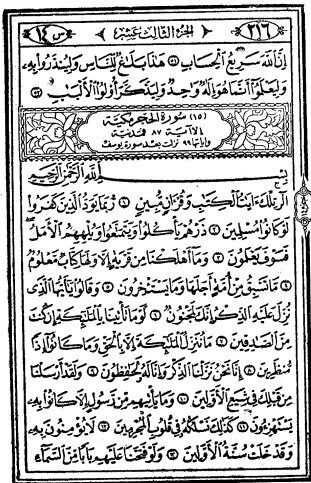 ٢١٦ الجزء الثالث عشر س ١٤
إن الله سريع الحساب ٥١ هذا بلاغ للناس ولينذروا به
وليعلموا أنما هو إله واحد وليذكر أولوا الألباب ٥٢
(١٥) سورة الحجر مكية
إلا آية ٨٧ فمدنية
وآياتها ٩٩ نزلت بعد سورة يوسف
بسم الله الرحمن الرحيم
الر تلك ءايت الكتب وقرءان مبين ١ ربما يود الذين كفروا
لو كانوا مسلمين ٢ ذرهم يأكلوا ويتمتعوا ويلههم الأمل
فسوف يعلمون ٣ وما أهلكنا من قرية إلا ولها كتاب معلوم
٤ ما تسبق من أمة أجلها وما يستخرون ٥ وقالوا يأيها الذى
نزل عليه الذكر إنك لمجنون ٦ لو ما تأتينا بالملئكة إن كنت
من الصدقين ٧ ما ننزل الملئكة إلا بالحق وما كانوا إذا
منظرين ٨ إنا نحن نزلنا الذكر وإنا له لحفظون ٩ ولقد أرسلنا
من قبلك فى شيع الأولين ١٠ وما يأتيهم من رسول إلا كانوا به
يستهزءون ١١ كذلك نسلكه فى قلوب المجرمين ١٢ لا يؤمنون به
وقد خلت سنة الأولين ١٣ ولو فتحنا عليهم بابا من السماء